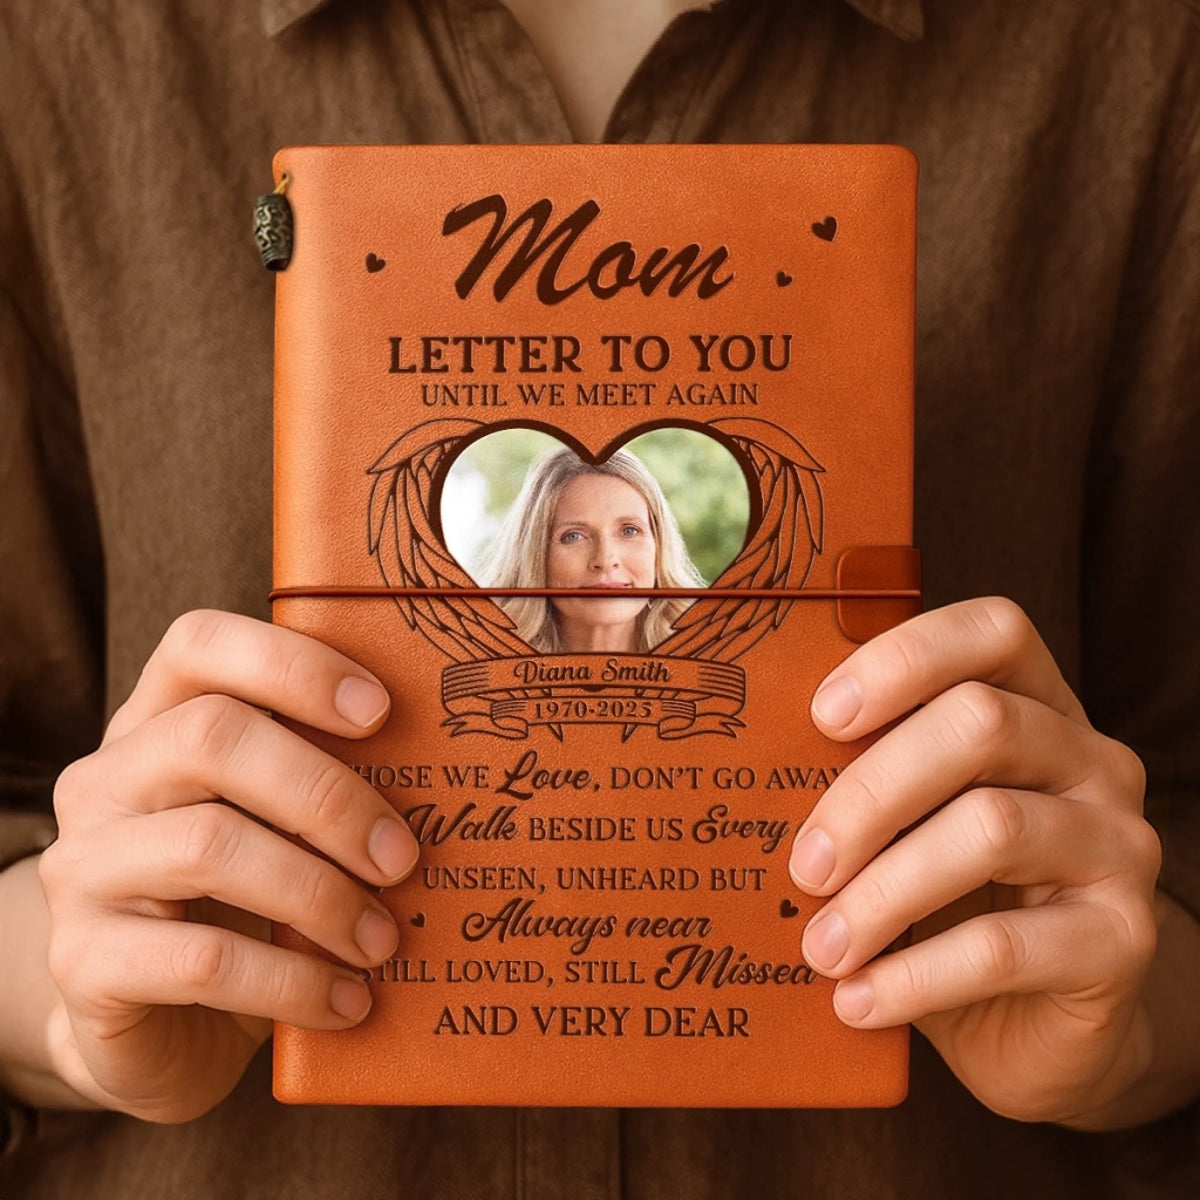 Mom
LETTER TO YOU
UNTIL WE MEET AGAIN
Diana Smith
1970-2025
THOSE WE Love, DON'T GO AWAY
Walk BESIDE US Every
UNSEEN, UNHEARD BUT
Always near
STILL LOVED, STILL Missed
AND VERY DEAR